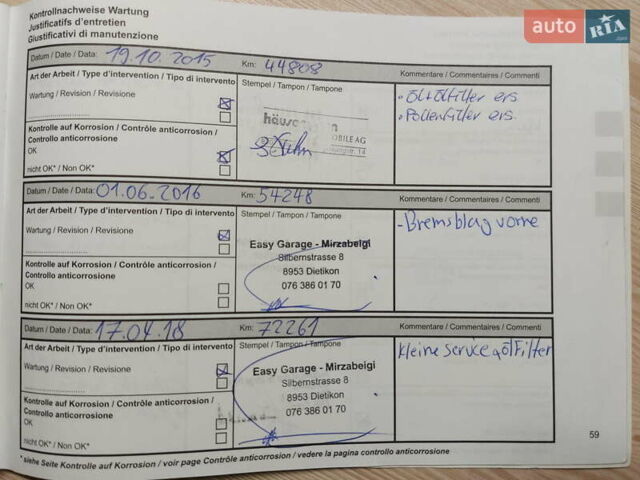 auto RIA.com
Kontrollnachweise Wartung
Justificatifs d'entretien
Giustificativi di manutenzione
Datum / Date / Data: 19.10.2015 Km: 44808
Art der Arbeit / Type d'intervention / Tipo di intervento Stempel / Tampon / Tampone Kommentare / Commentaires / Commenti
Wartung / Revision / Revisione
Kontrolle auf Korrosion / Contrôle anticorrosion /
Controllo anticorrosione
OK
nicht OK* / Non OK*
MOBILE AG
• Öl+Ölfilter ers
• Pollenfilter ers.
Datum / Date / Data: 01.06.2016 Km: 54248
Art der Arbeit / Type d'intervention / Tipo di intervento Stempel / Tampon / Tampone Kommentare / Commentaires / Commenti
Wartung / Revision / Revisione
Kontrolle auf Korrosion / Contrôle anticorrosion /
Controllo anticorrosione
OK
nicht OK* / Non OK*
Easy Garage - Mirzabeigi
Silbernstrasse 8
8953 Dietikon
076 386 01 70
- Bremsblag vorne
Datum / Date / Data: 17.04.18 Km: 72261
Art der Arbeit / Type d'intervention / Tipo di intervento Stempel / Tampon / Tampone Kommentare / Commentaires / Commenti
Wartung / Revision / Revisione
Kontrolle auf Korrosion / Contrôle anticorrosion /
Controllo anticorrosione
OK
nicht OK* / Non OK*
Easy Garage - Mirzabeigi
Silbernstrasse 8
8953 Dietikon
076 386 01 70
kleine Service ölFilter
59
*siehe Seite Kontrolle auf Korrosion / voir page Contrôle anticorrosion / vedere la pagina controllo anticorrosione